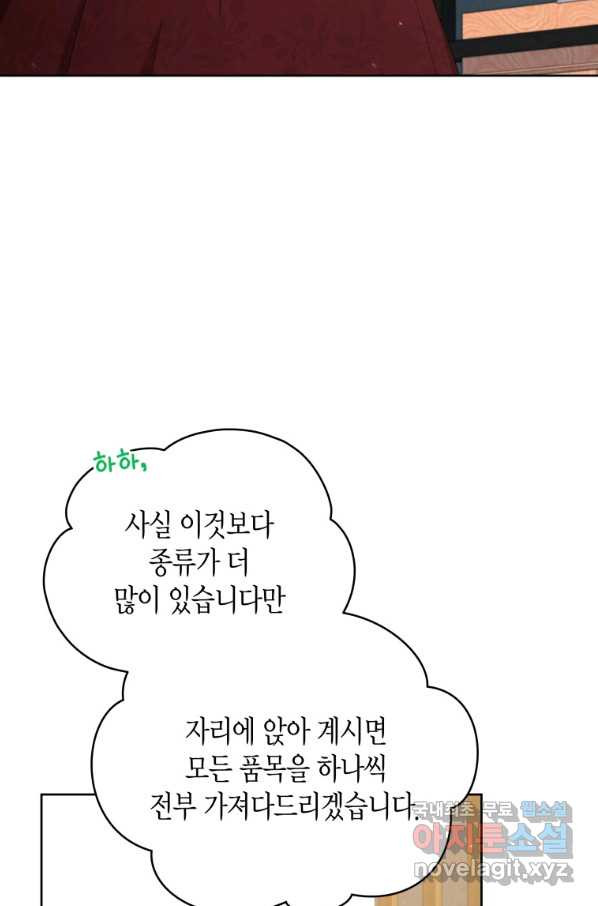 하하,
사실 이것보다
종류가 더
많이 있습니다만
자리에 앉아 계시면
모든 품목을 하나씩
전부 가져다드리겠습니다.
국내최초 무료 웹소설
아지툰소설
novelagit.xyz